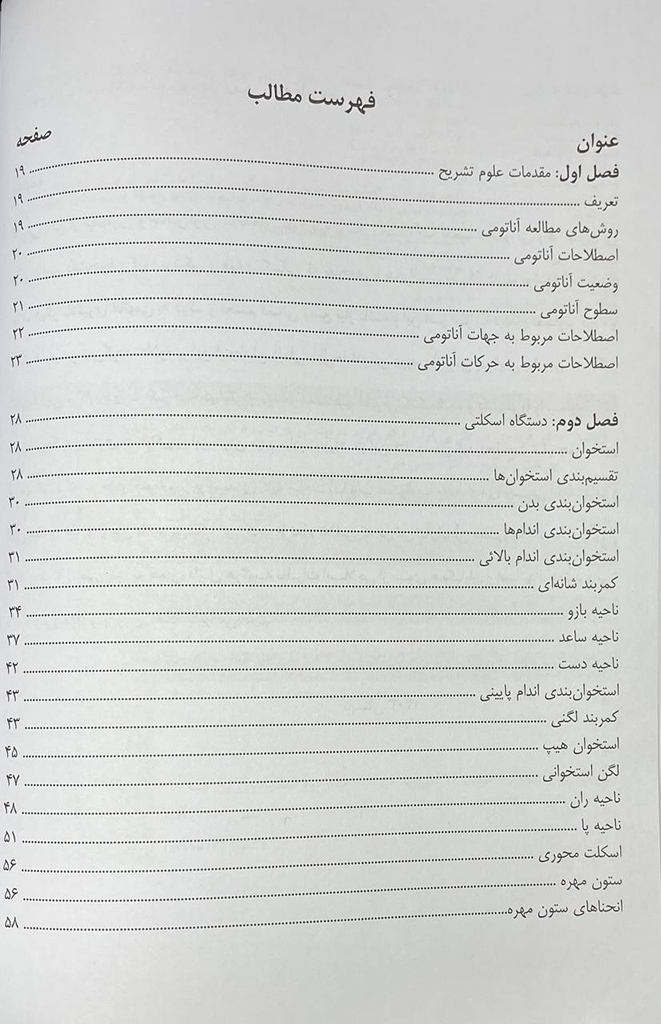 فهرست مطالب
عنوان صفحه
فصل اول: مقدمات علوم تشریح ........ ۱۹
تعریف ........ ۱۹
روش‌های مطالعه آناتومی ........ ۱۹
اصطلاحات آناتومی ........ ۲۰
وضعیت آناتومی ........ ۲۰
سطوح آناتومی ........ ۲۱
اصطلاحات مربوط به جهات آناتومی ........ ۲۲
اصطلاحات مربوط به حرکات آناتومی ........ ۲۳
فصل دوم: دستگاه اسکلتی ........ ۲۸
استخوان ........ ۲۸
تقسیم‌بندی استخوان‌ها ........ ۲۸
استخوان‌بندی بدن ........ ۳۰
استخوان‌بندی اندام‌ها ........ ۳۰
استخوان‌بندی اندام بالائی ........ ۳۱
کمربند شانه‌ای ........ ۳۱
ناحیه بازو ........ ۳۴
ناحیه ساعد ........ ۳۷
ناحیه دست ........ ۴۲
استخوان‌بندی اندام پایینی ........ ۴۳
کمربند لگنی ........ ۴۳
استخوان هیپ ........ ۴۵
لگن استخوانی ........ ۴۷
ناحیه ران ........ ۴۸
ناحیه پا ........ ۵۱
اسکلت محوری ........ ۵۶
ستون مهره ........ ۵۶
انحناهای ستون مهره ........ ۵۸